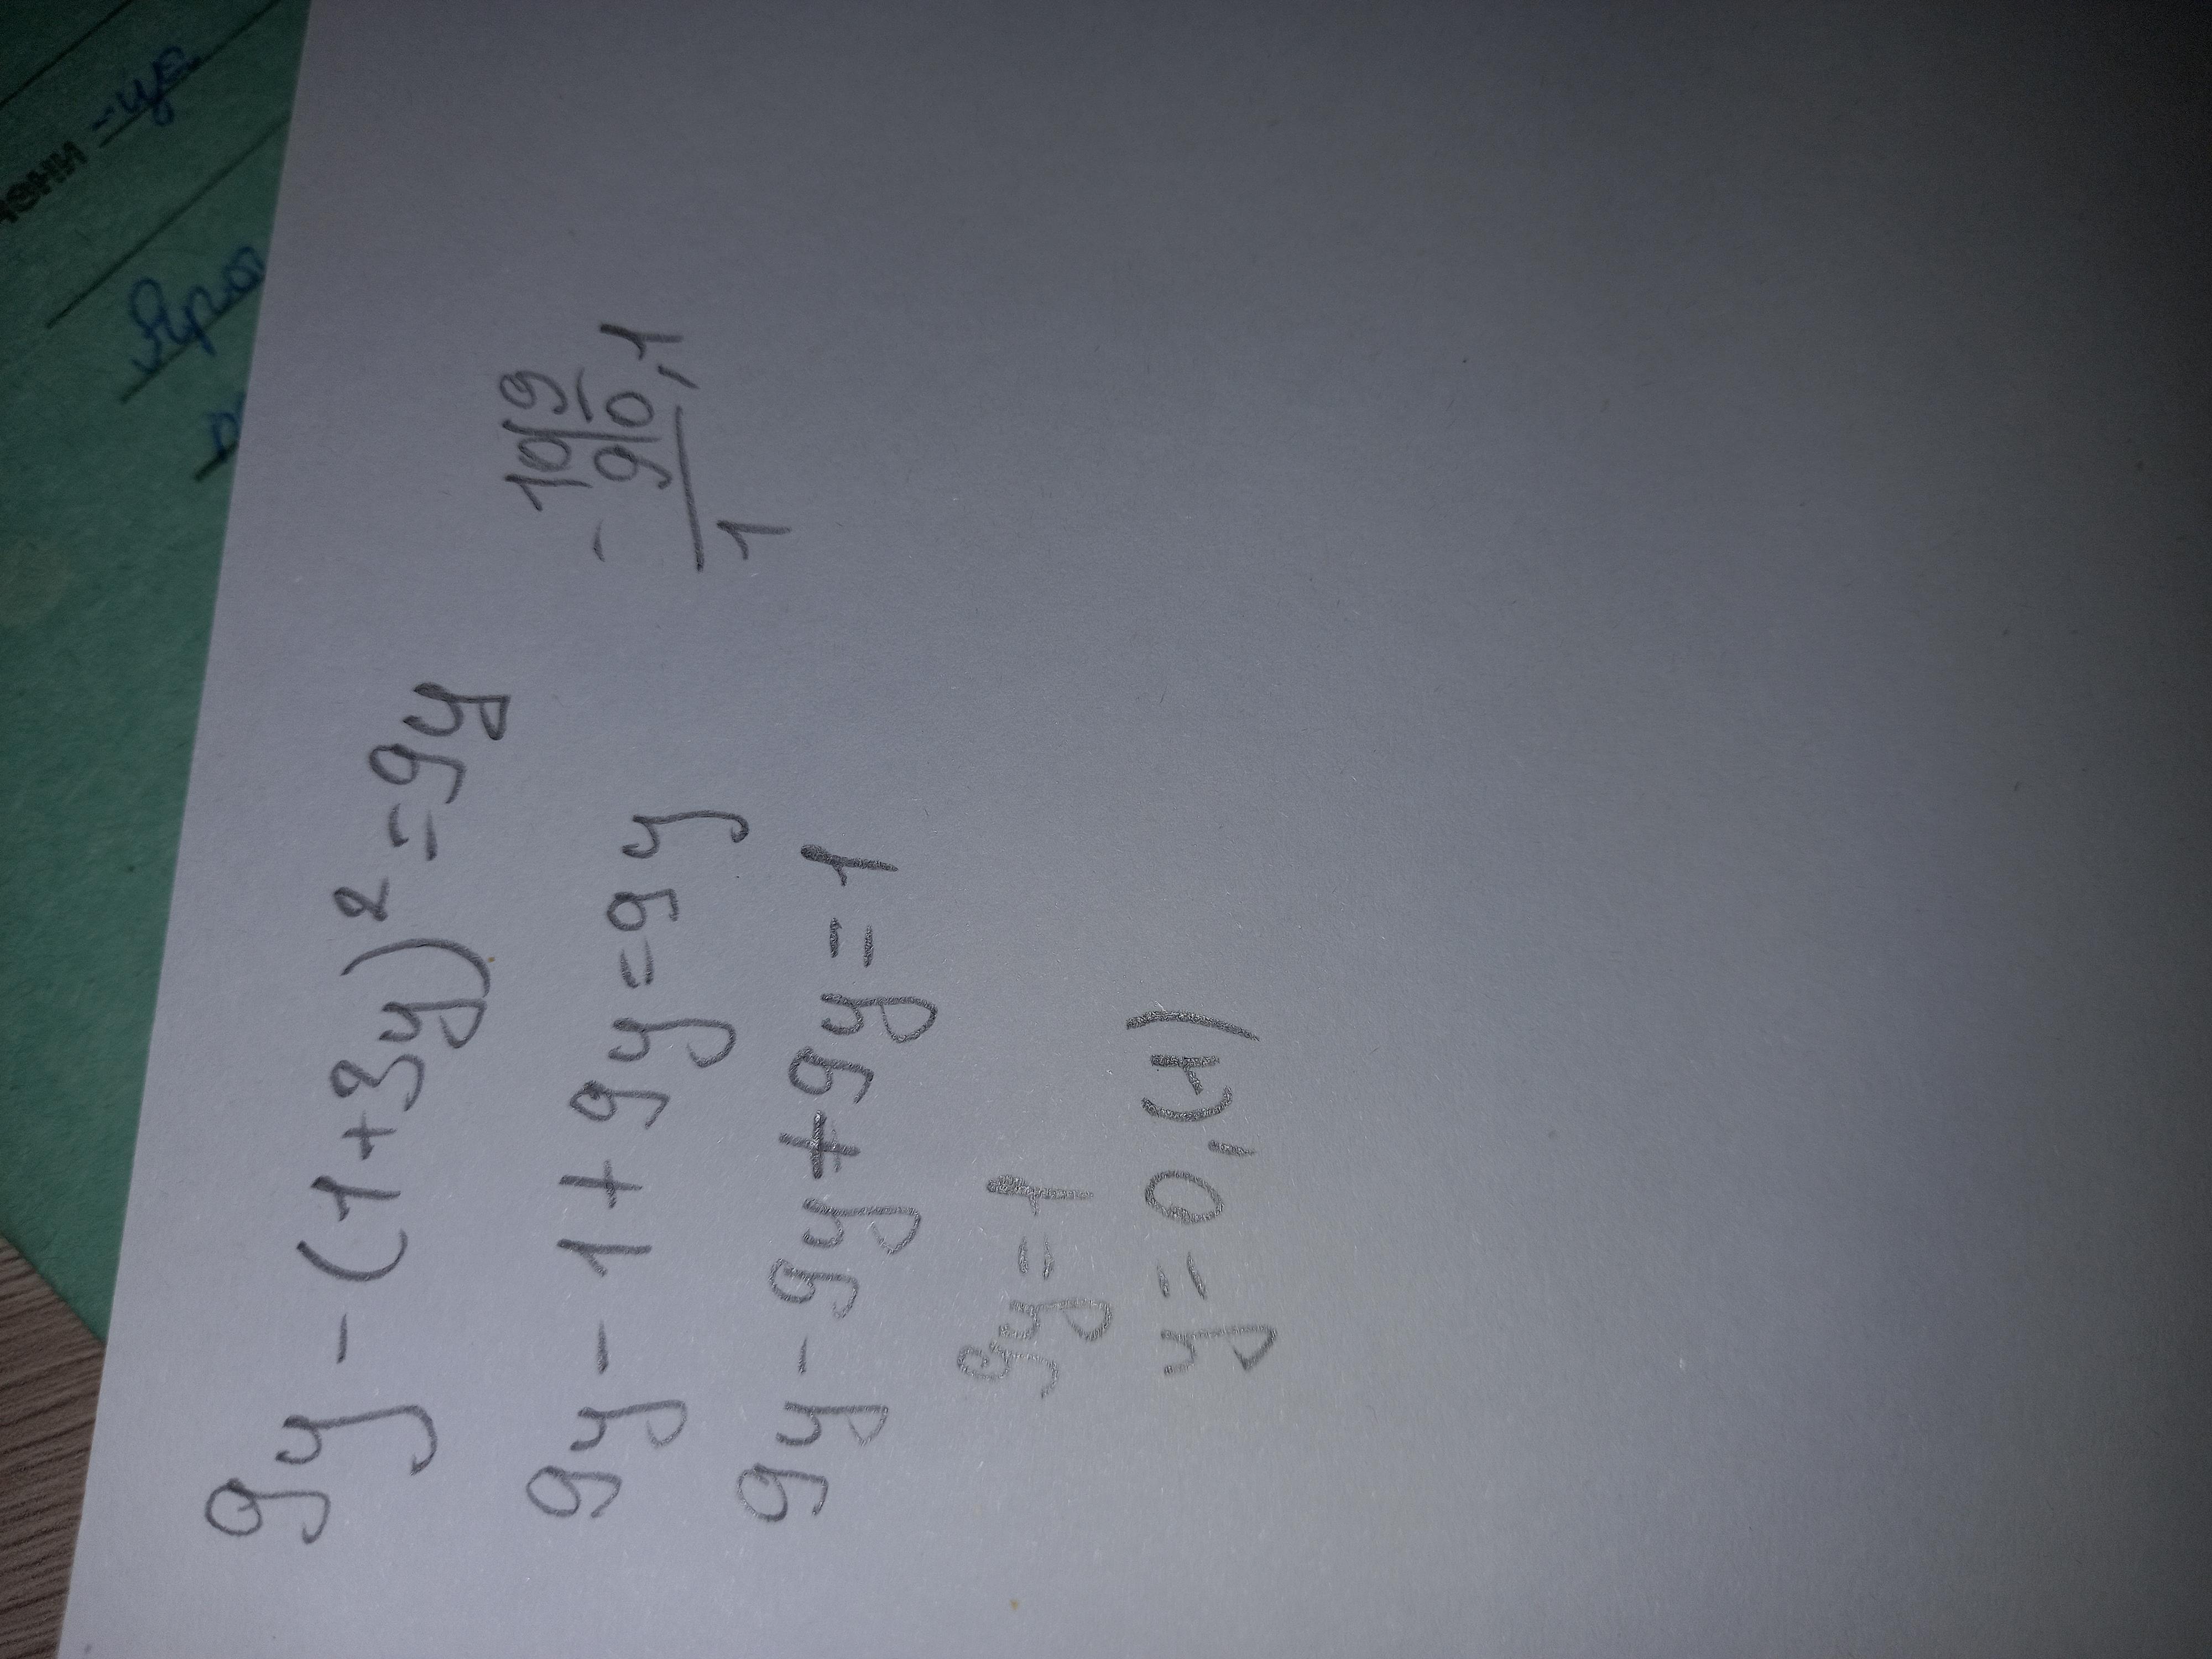 9y - (1+3y)² = 9y
9y - 1 + 9y = 9y
9y - 9y + 9y = 1
9y = 1
y = 0,(1)
- 10|9
9|0,1
1
-ця